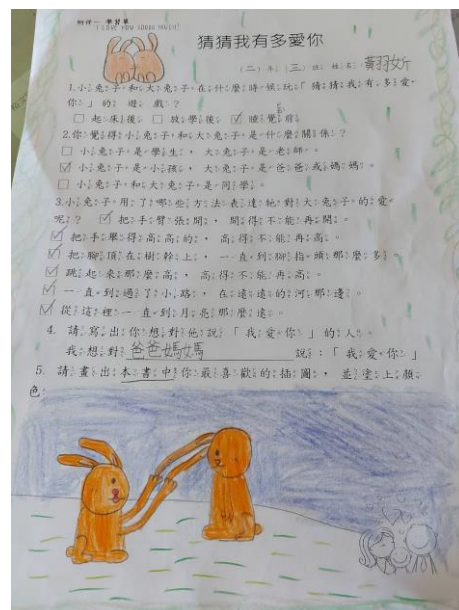 附件一 學習單
"I LOVE YOU SOOOO MUCH!"
猜猜我有多愛你
（二）年（三）班 姓名：黃羽妡
1.小兔子和大兔子在什麼時候玩「猜猜我有多愛
你」的遊戲？
□ 起床後 □ 放學後 ☑ 睡覺前
2.你覺得小兔子和大兔子是什麼關係？
□ 小兔子是學生，大兔子是老師。
☑ 小兔子是小孩，大兔子是爸爸或媽媽。
□ 小兔子和大兔子是同學。
3.小兔子用了哪些方法表達牠對大兔子的愛
呢？ ☑ 把手臂張開，開得不能再開。
☑ 把手舉得高高的，高得不能再高。
☑ 把腳頂在樹幹上，一直到腳指頭那麼多。
☑ 跳起來那麼高，高得不能再高。
☑ 一直到過了小路，在遠遠的河那邊。
☑ 從這裡一直到月亮那麼遠。
4. 請寫出你想對他說「我愛你」的人。
我想對 爸爸媽媽 說：「我愛你」
5. 請畫出本書中你最喜歡的插圖，並塗上顏
色。